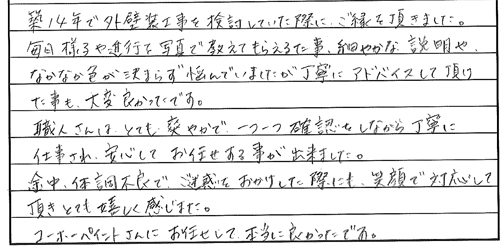 築14年で外壁装工事を検討していた際に、ご縁を頂きました。
毎日様子や進行を写真で教えてもらえる事、細やかな説明や、
なかなか色が決まらず悩んでいましたが丁寧にアドバイスして頂け
た事も、大変良かったです。
職人さんは、とても爽やかで、一つ一つ確認をしながら丁寧に
仕事され、安心してお任せする事が出来ました。
途中、体調不良で、迷惑をおかけした際にも、笑顔で対応して
頂きとても嬉しく感じました。
コーホーペイントさんにお任せして、本当に良かったです。